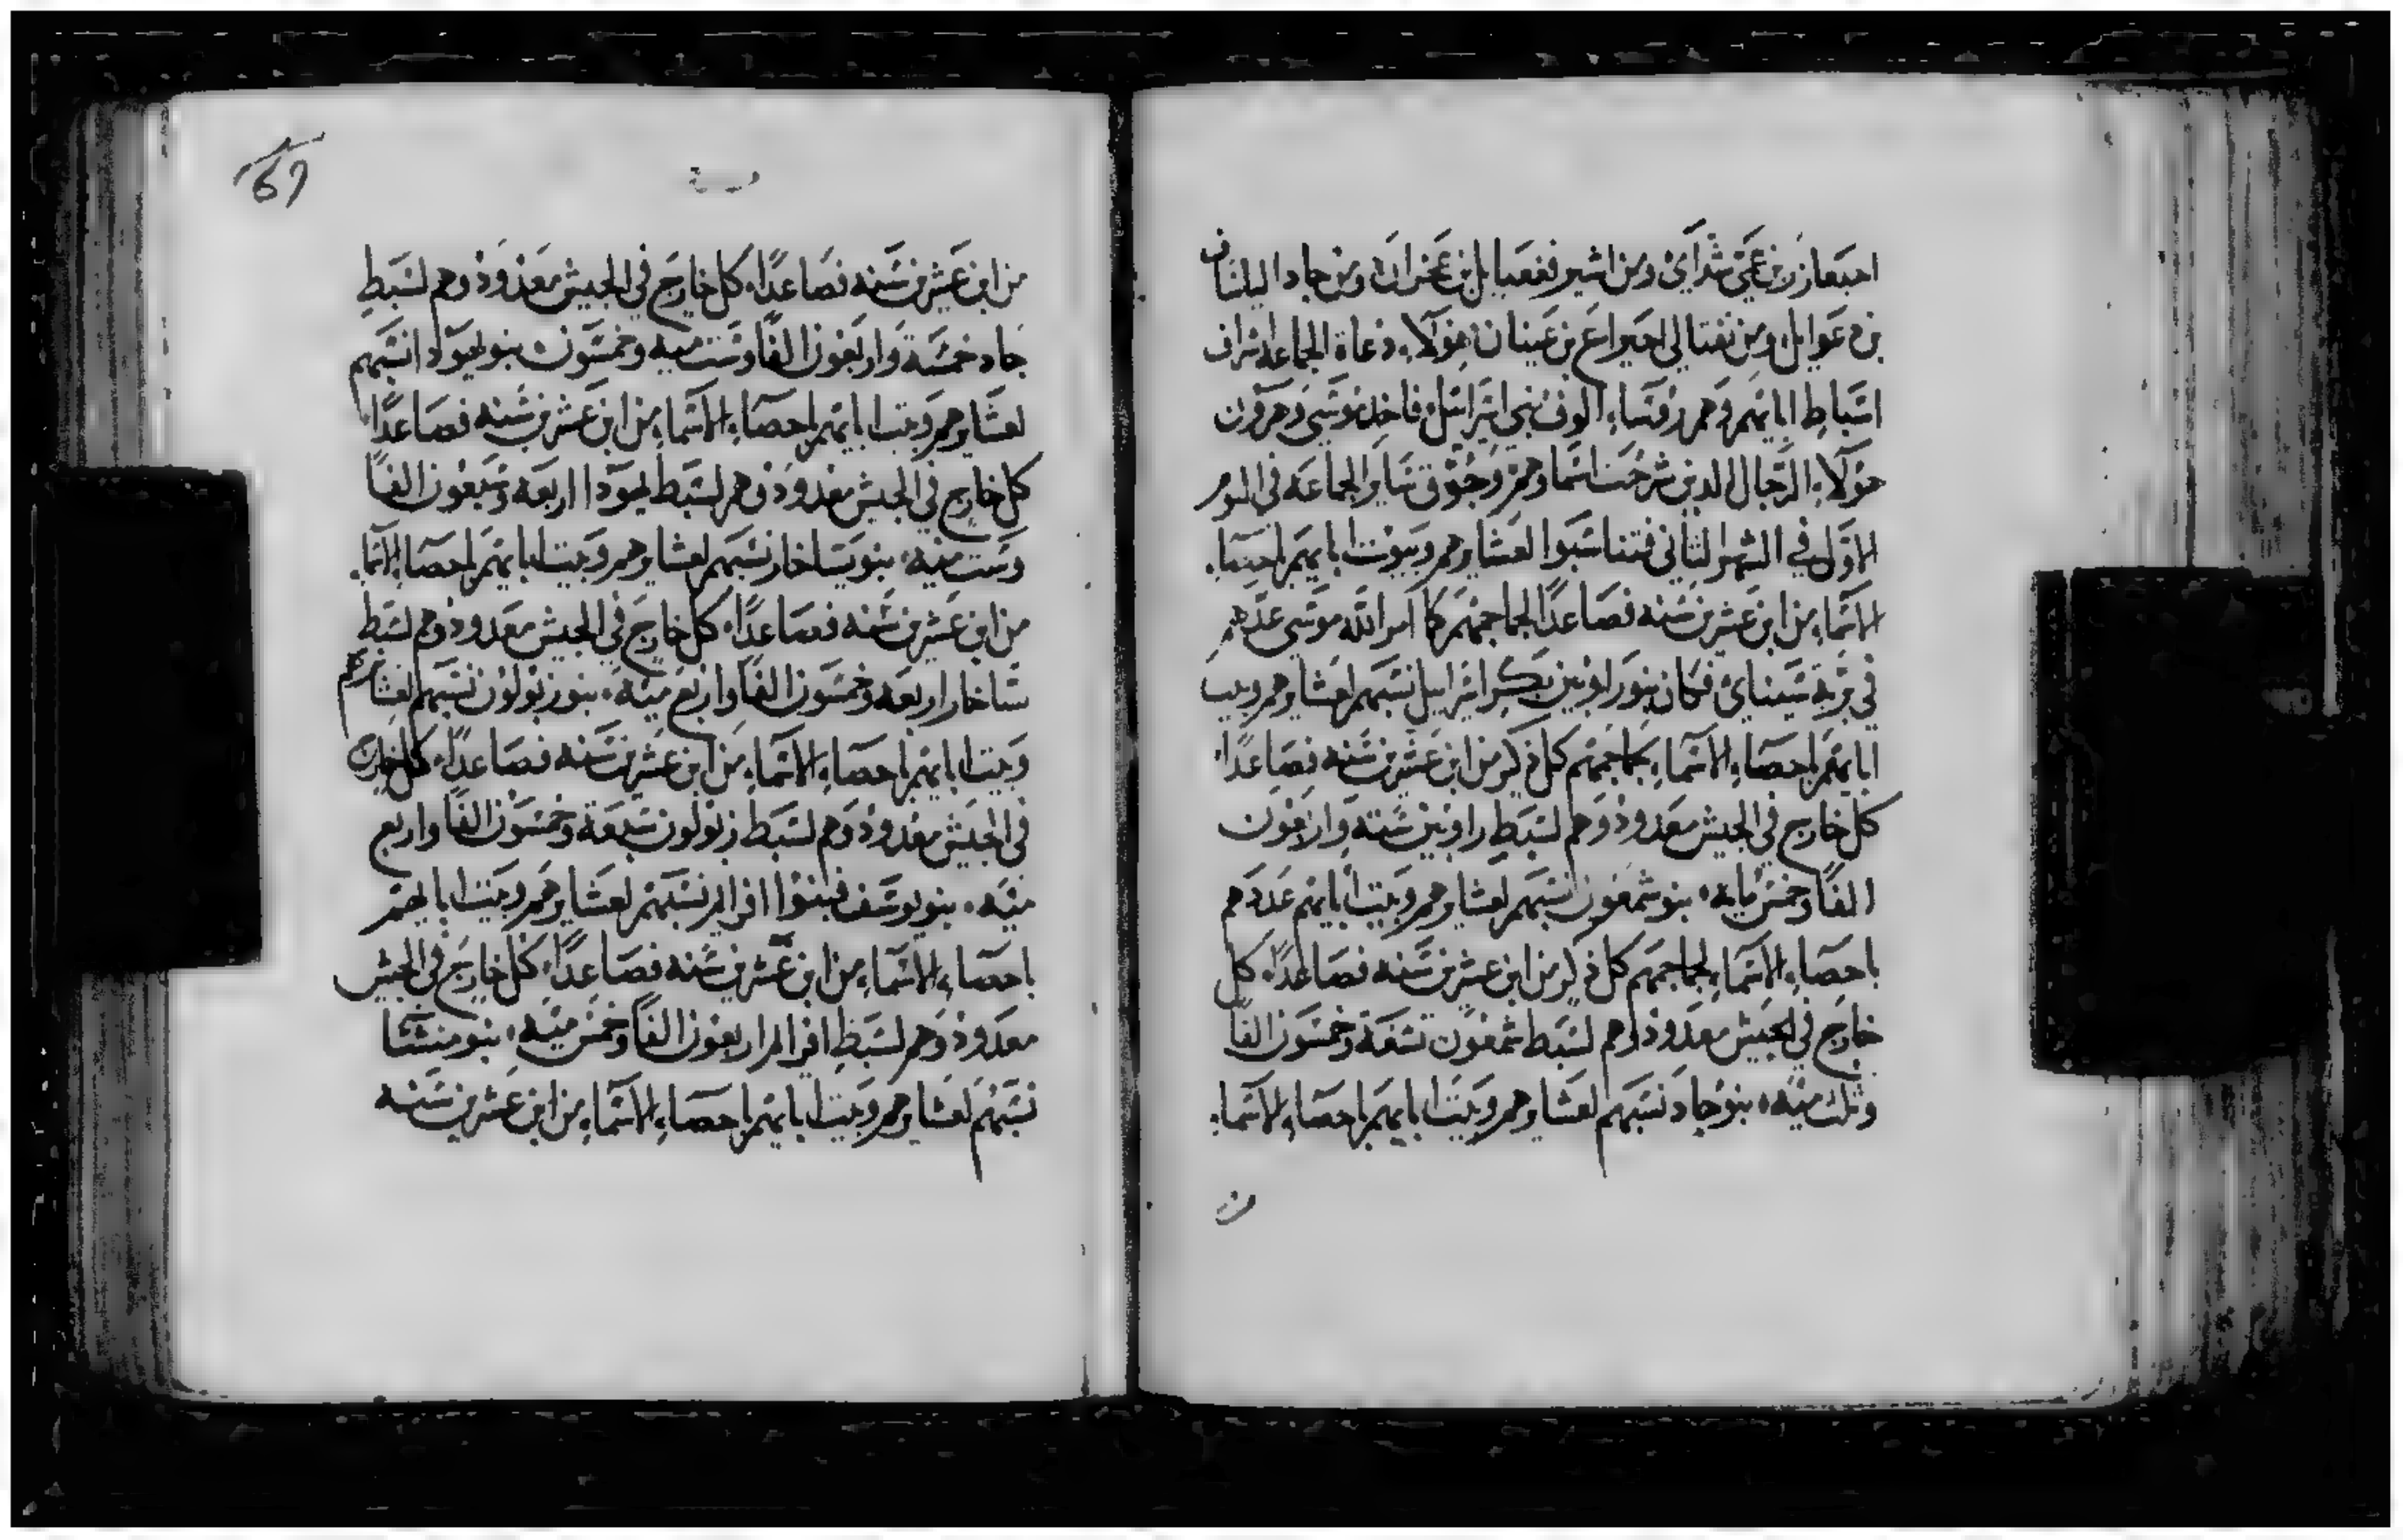 احيعازر بن عمي شداي ومن اشير فغعيايل بن عخران ومن جاد اليلساف
بن دعوايل ومن نفتالي احيراع بن عينان هولاء دعاة الجماعه اشراف
اسباط ابايهم وهم روسا الوف بني اسراييل فاخذ موسى وهرون
هولاء الرجال الدين شرحت اسماوهم وجوق ساير الجماعه في اليوم
الاول في الشهر الثاني فتناسبوا لعشايرهم وبيوت ابايهم باحصاء
الاسماء من ابن عشرين سنه فصاعدًا لجماجمهم كما امر الله موسى عدهم
في بريه سيناي فكان بنو راوبين بكر اسراييل نسبهم لعشايرهم وبيت
ابايهم باحصاء الاسماء بجماجمهم كل ذكر من ابن عشرين سنه فصاعدًا
كل خارج في الجيش معدودوهم لسبط راوبين سته واربعون
الفًا وخمس مايه بنو شمعون نسبهم لعشايرهم وبيت ابايهم عددهم
باحصاء الاسماء لجماجمهم كل ذكر من ابن عشرين سنه فصاعدًا كل
خارج في الجيش معدودوهم لسبط شمعون تسعة وخمسون الفًا
وثلث ميه بنو جاد نسبهم لعشايرهم وبيت ابايهم باحصاء الاسماء
67
من ابن عشرين سنه فصاعدًا كل خارج في الجيش معدودوهم لسبط
جاد خمسة واربعون الفًا وست ميه وخمسون بنو يهودا نسبهم
لعشايرهم وبيت ابايهم باحصاء الاسماء من ابن عشرين سنه فصاعدًا
كل خارج في الجيش معدودوهم لسبط يهودا اربعه وسبعون الفًا
وست ميه بنو يساخار نسبهم لعشايرهم وبيت ابايهم باحصاء الاسماء
من ابن عشرين سنه فصاعدًا كل خارج في الجيش معدودوهم لسبط
يساخار اربعه وخمسون الفًا واربع ميه بنو زبولون نسبهم لعشايرهم
وبيت ابايهم باحصاء الاسماء من ابن عشرين سنه فصاعدًا كل خارج
في الجيش معدودوهم لسبط زبولون سبعة وخمسون الفًا واربع
ميه بنو يوسف فبنوا افرايم نسبهم لعشايرهم وبيت ابايهم
باحصاء الاسماء من ابن عشرين سنه فصاعدًا كل خارج في الجيش
معدودوهم لسبط افرايم اربعون الفًا وخمس ميه بنو منشا
نسبهم لعشايرهم وبيت ابايهم باحصاء الاسماء من ابن عشرين سنه